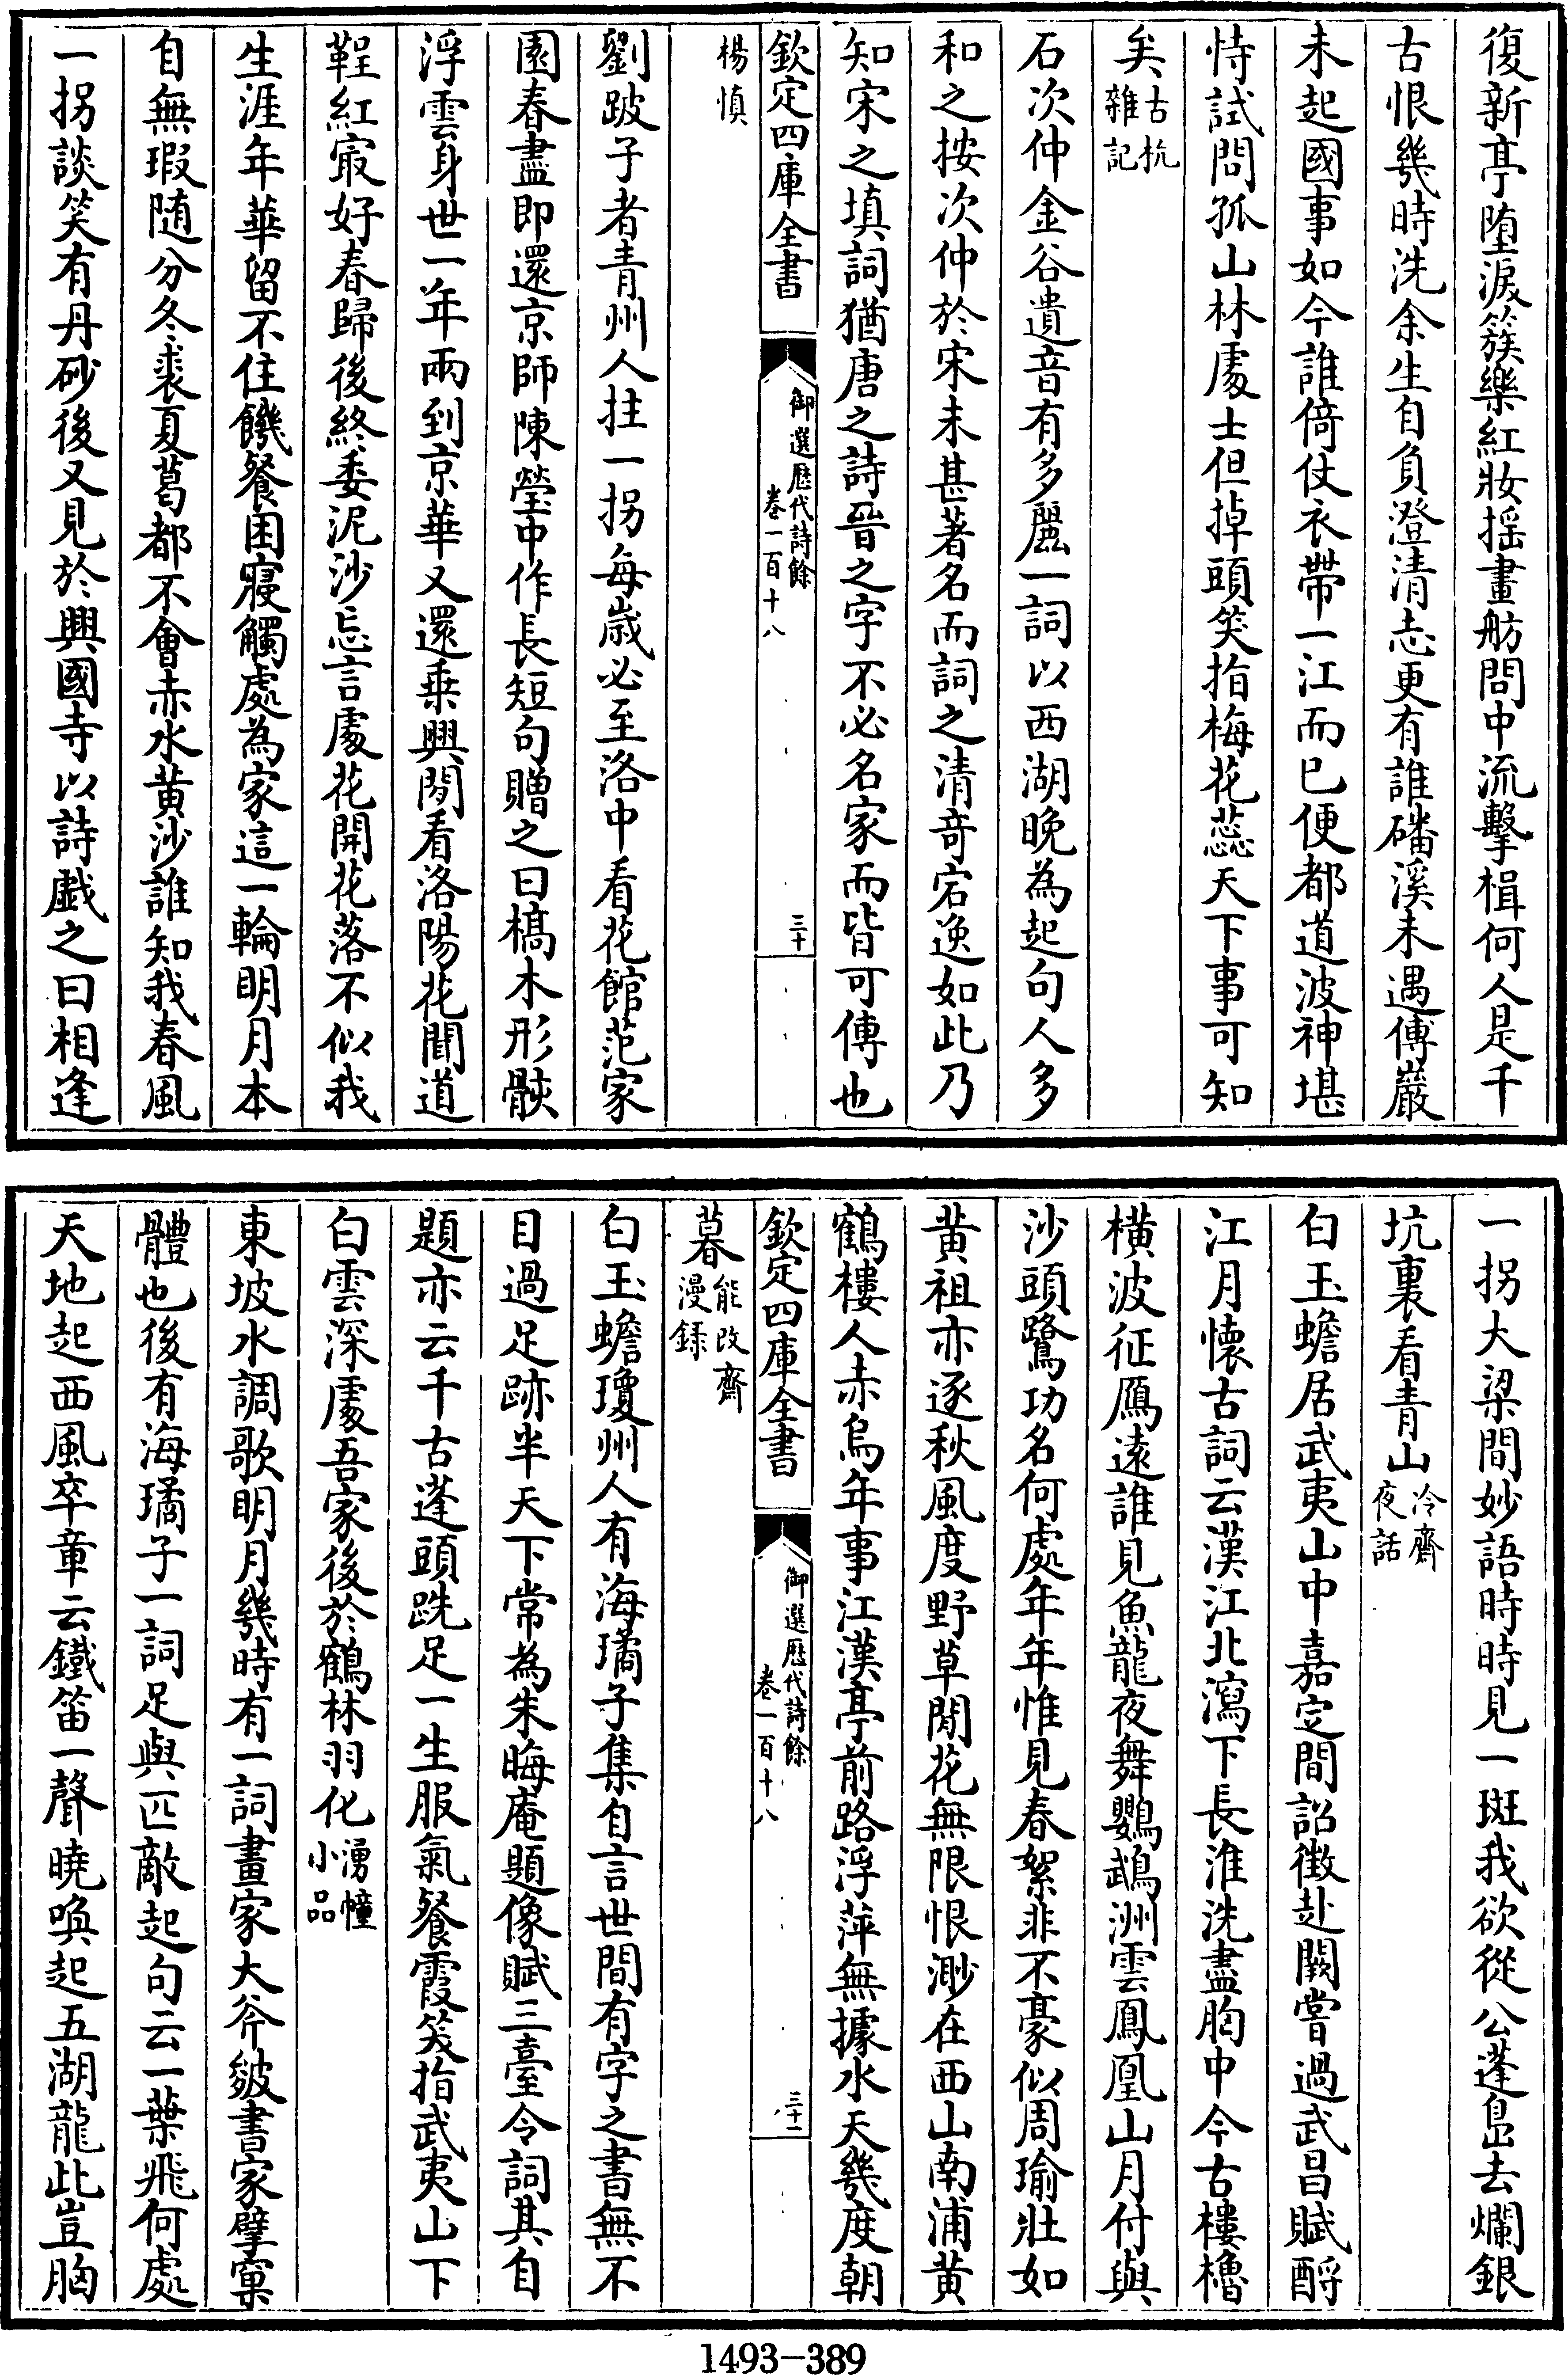 復新亭堕淚簇樂紅妝揺畫舫問中流擊楫何人是千
古恨幾時洗余生自負澄清志更有誰磻溪未遇傅巖
未起國事如今誰倚仗衣帶一江而已便都道波神堪
恃試問孤山林處士但掉頭笑指梅花蕊天下事可知
矣古杭雜記
石次仲金谷遺音有多麗一詞以西湖晚為起句人多
和之按次仲於宋未甚著名而詞之清竒宕逸如此乃
知宋之填詞猶唐之詩晉之字不必名家而皆可傳也
欽定四庫全書
御選歴代詩餘
卷一百十八
三十
楊慎
劉跛子者青州人拄一拐每歳必至洛中看花館范家
園春盡即還京師陳瑩中作長短句贈之曰槁木形骸
浮雲身世一年兩到京華又還乗興閒看洛陽花聞道
鞓紅㝡好春歸後終委泥沙忘言處花開花落不似我
生涯年華留不住饑餐困寢觸處為家這一輪明月本
自無瑕随分冬裘夏葛都不會赤水黄沙誰知我春風
一拐談笑有丹砂後又見於興國寺以詩戯之曰相逢
一拐大梁間妙語時時見一斑我欲從公蓬島去爛銀
坑裏看青山冷齋夜話
白玉蟾居武夷山中嘉定間詔徴赴闕嘗過武昌賦酹
江月懷古詞云漢江北瀉下長淮洗盡胸中今古樓櫓
横波征鴈遠誰見魚龍夜舞鸚鵡洲雲鳳凰山月付與
沙頭鷺功名何處年年惟見春絮非不豪似周瑜壯如
黄祖亦逐秋風度野草閒花無限恨渺在西山南浦黄
鶴樓人赤烏年事江漢亭前路浮萍無據水天幾度朝
欽定四庫全書
御選歴代詩餘
卷一百十八
三十一
暮能改齋漫録
白玉蟾瓊州人有海璚子集自言世間有字之書無不
目過足跡半天下常為朱晦庵題像賦三臺令詞其自
題亦云千古蓬頭跣足一生服氣餐霞笑指武夷山下
白雲深處吾家後於鶴林羽化湧幢小品
東坡水調歌明月幾時有一詞畫家大斧皴書家擘窠
體也後有海璚子一詞足與匹敵起句云一葉飛何處
天地起西風卒章云鐵笛一聲曉喚起五湖龍此豈胸
1493-389